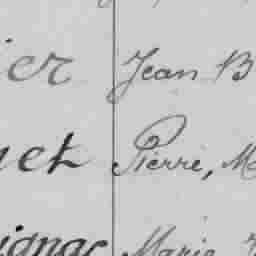 er Jean B
et Pierre, M
ignac Marie